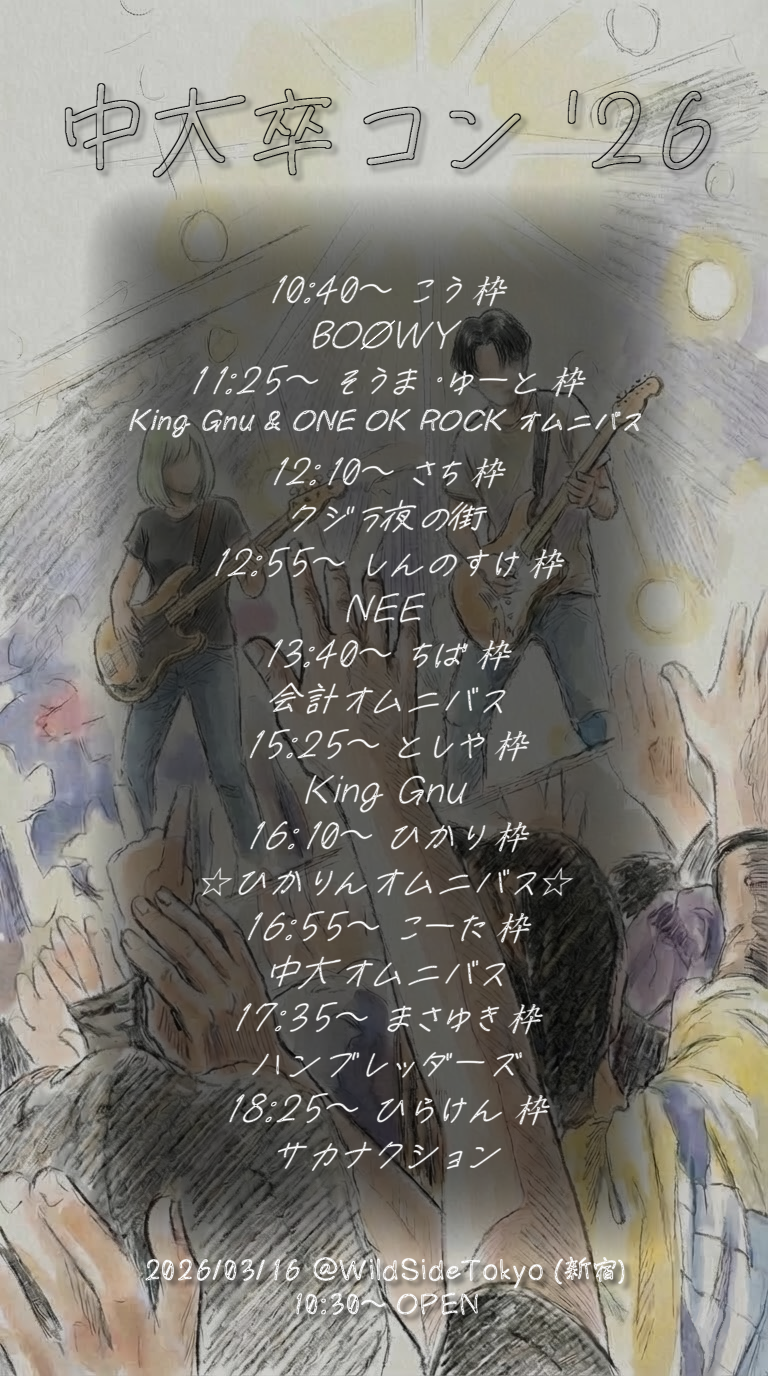 中大卒コン '26
10:40〜 こう枠
BOØWY
11:25〜 そうま・ゆーと 枠
King Gnu & ONE OK ROCK オムニバス
12:10〜 さち 枠
クジラ夜の街
12:55〜 しんのすけ 枠
NEE
13:40〜 ちば 枠
会計オムニバス
15:25〜 としや 枠
King Gnu
16:10〜 ひかり 枠
☆ひかりんオムニバス☆
16:55〜 こーた 枠
中大オムニバス
17:35〜 まさゆき 枠
ハンブレッダーズ
18:25〜 ひらけん 枠
サカナクション
2026/03/16 @WildSideTokyo (新宿)
10:30〜 OPEN